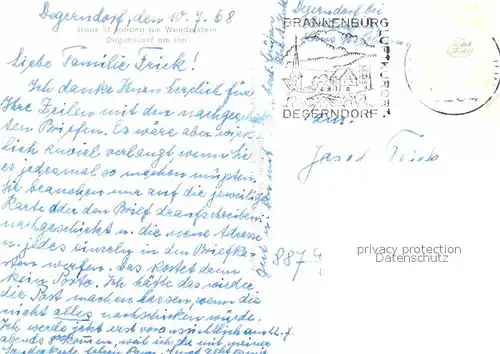 Degerndorf, den 10.7.68
Haus St. Johann am Wendelstein
Degerndorf am Inn
Liebe Familie Frick!
Ich danke Ihnen herzlich für
Ihre Zeilen mit den nachgesch
ten Briefen. Es wäre aber wirk-
lich zuviel verlangt wenn Sie
es jedesmal so machen müßten.
Sie brauchen nur auf die jeweilige
Karte oder den Brief draufschreiben:
nachgeschickt u. die neue Adresse
u. jedes einzeln in den Briefka-
sten werfen. Das kostet dann
kein Porto. Ich hätte das wieder
der Post machen lassen, wenn die
nicht alles nachschicken würde.
Ich werde jetzt erst voraussichtlich am 12.7.
abends kommen, weil ich da mit meiner
Degerndorf bei
BRANNENBURG
LUFTKURORT
DEGERNDORF
Frick
8874
privacy protection
Datenschutz